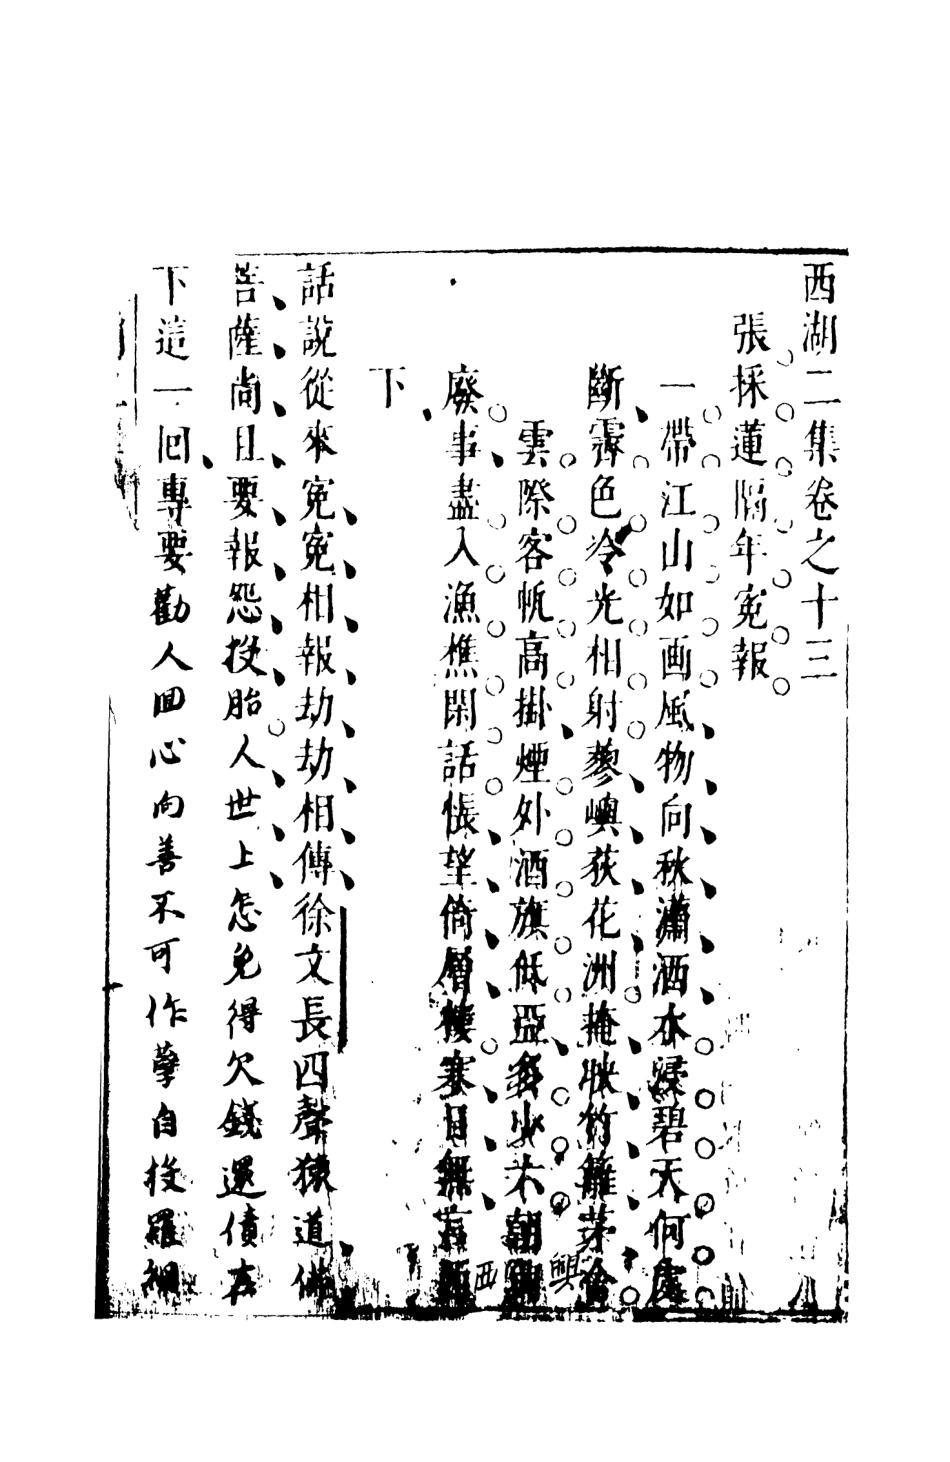 西湖二集卷之十三
張採蓮隔年寃報
一帶江山如画風物向秋瀟洒水浸碧天何處
斷霽色冷光相射蓼嶼荻花洲掩映竹籬茅舍
雲際客帆高掛煙外酒旗低亞多少六朝興
廢事盡入漁樵閑話悵望倚層樓寒日無言西
下
話說從來寃寃相報劫劫相傳徐文長四聲猿道佛
菩薩尚且要報怨投胎人世上怎免得欠錢還債在
下這一回專要勸人回心向善不可作孽自投羅網